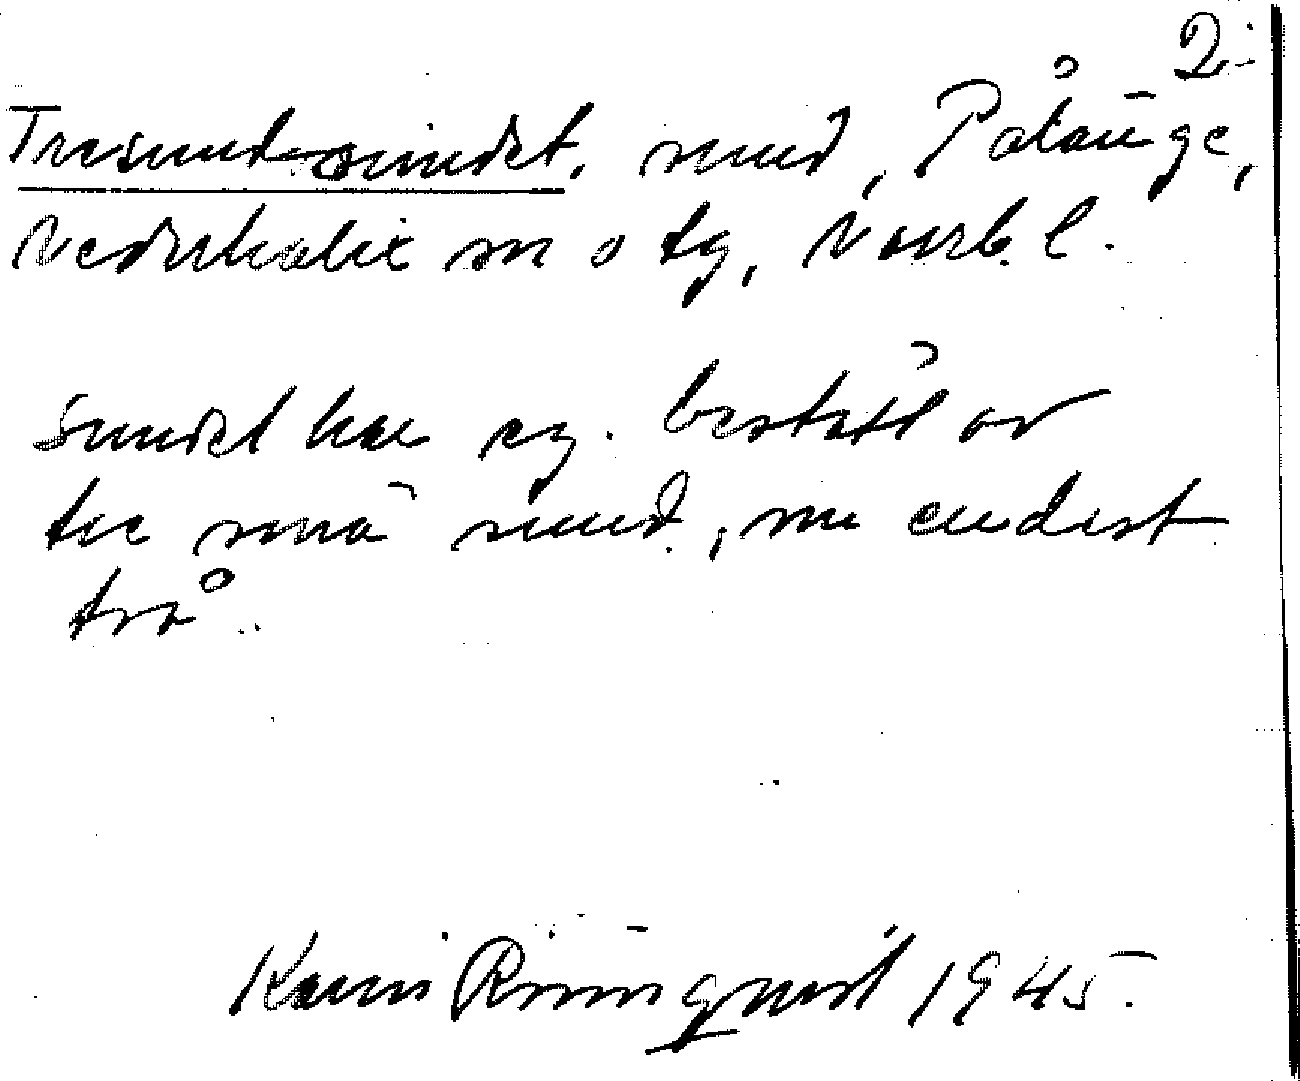 2.
Tresundssundet, sund, Pålänge,
Nederkalix sn o tg, Norrb. l.
Sundet har eg. bestått av
tre små sund, nu endast
två.
Karin Rönnquist 1945.